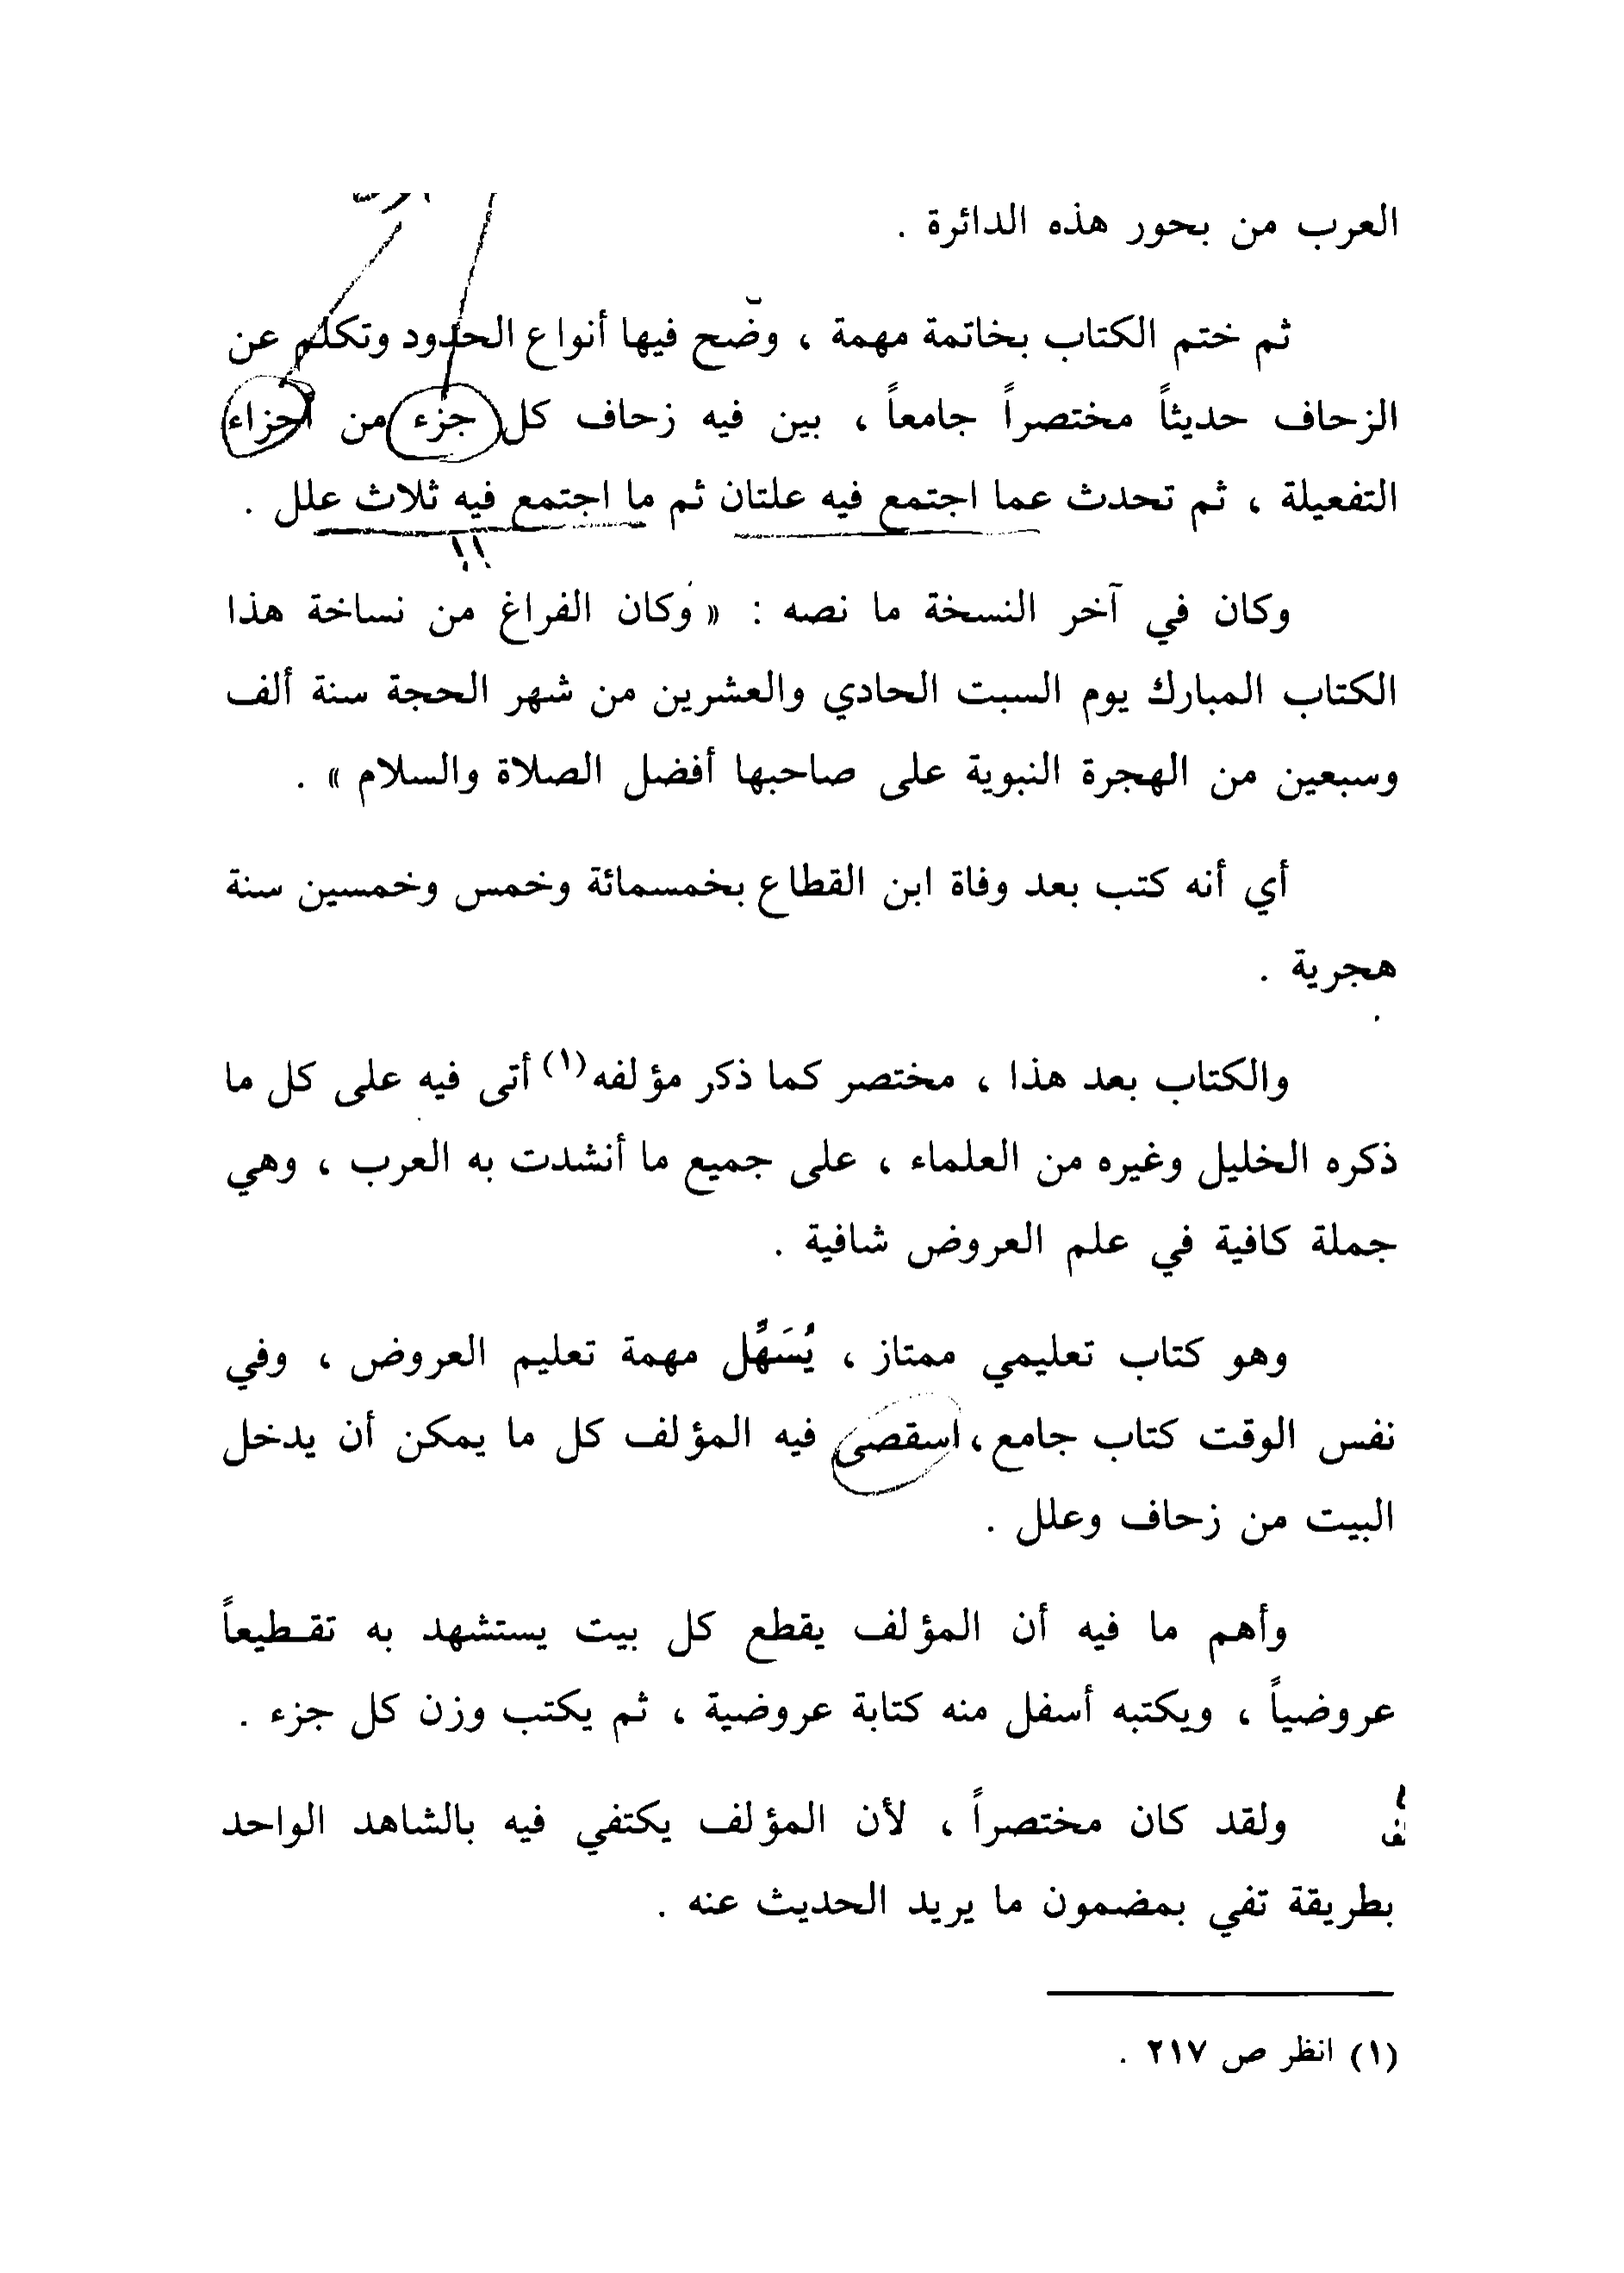 العرب من بحور هذه الدائرة .
ثم ختم الكتاب بخاتمة مهمة ، وضّح فيها أنواع الحدود وتكلم عن
الزحاف حديثاً مختصراً جامعاً ، بين فيه زحاف كل جزء من أجزاء
التفعيلة ، ثم تحدث عما اجتمع فيه علتان ثم ما اجتمع فيه ثلاث علل .
!!
وكان في آخر النسخة ما نصه : « وكان الفراغ من نساخة هذا
الكتاب المبارك يوم السبت الحادي والعشرين من شهر الحجة سنة ألف
وسبعين من الهجرة النبوية على صاحبها أفضل الصلاة والسلام » .
أي أنه كتب بعد وفاة ابن القطاع بخمسمائة وخمس وخمسين سنة
هجرية .
والكتاب بعد هذا ، مختصر كما ذكر مؤلفه (١) أتى فيه على كل ما
ذكره الخليل وغيره من العلماء ، على جميع ما أنشدت به العرب ، وهي
جملة كافية في علم العروض شافية .
وهو كتاب تعليمي ممتاز ، يُسَهِّل مهمة تعليم العروض ، وفي
نفس الوقت كتاب جامع ، اسقصى فيه المؤلف كل ما يمكن أن يدخل
البيت من زحاف وعلل .
وأهم ما فيه أن المؤلف يقطع كل بيت يستشهد به تقطيعاً
عروضياً ، ويكتبه أسفل منه كتابة عروضية ، ثم يكتب وزن كل جزء .
ولقد كان مختصراً ، لأن المؤلف يكتفي فيه بالشاهد الواحد
بطريقة تفي بمضمون ما يريد الحديث عنه .
(١) انظر ص ٢١٧ .